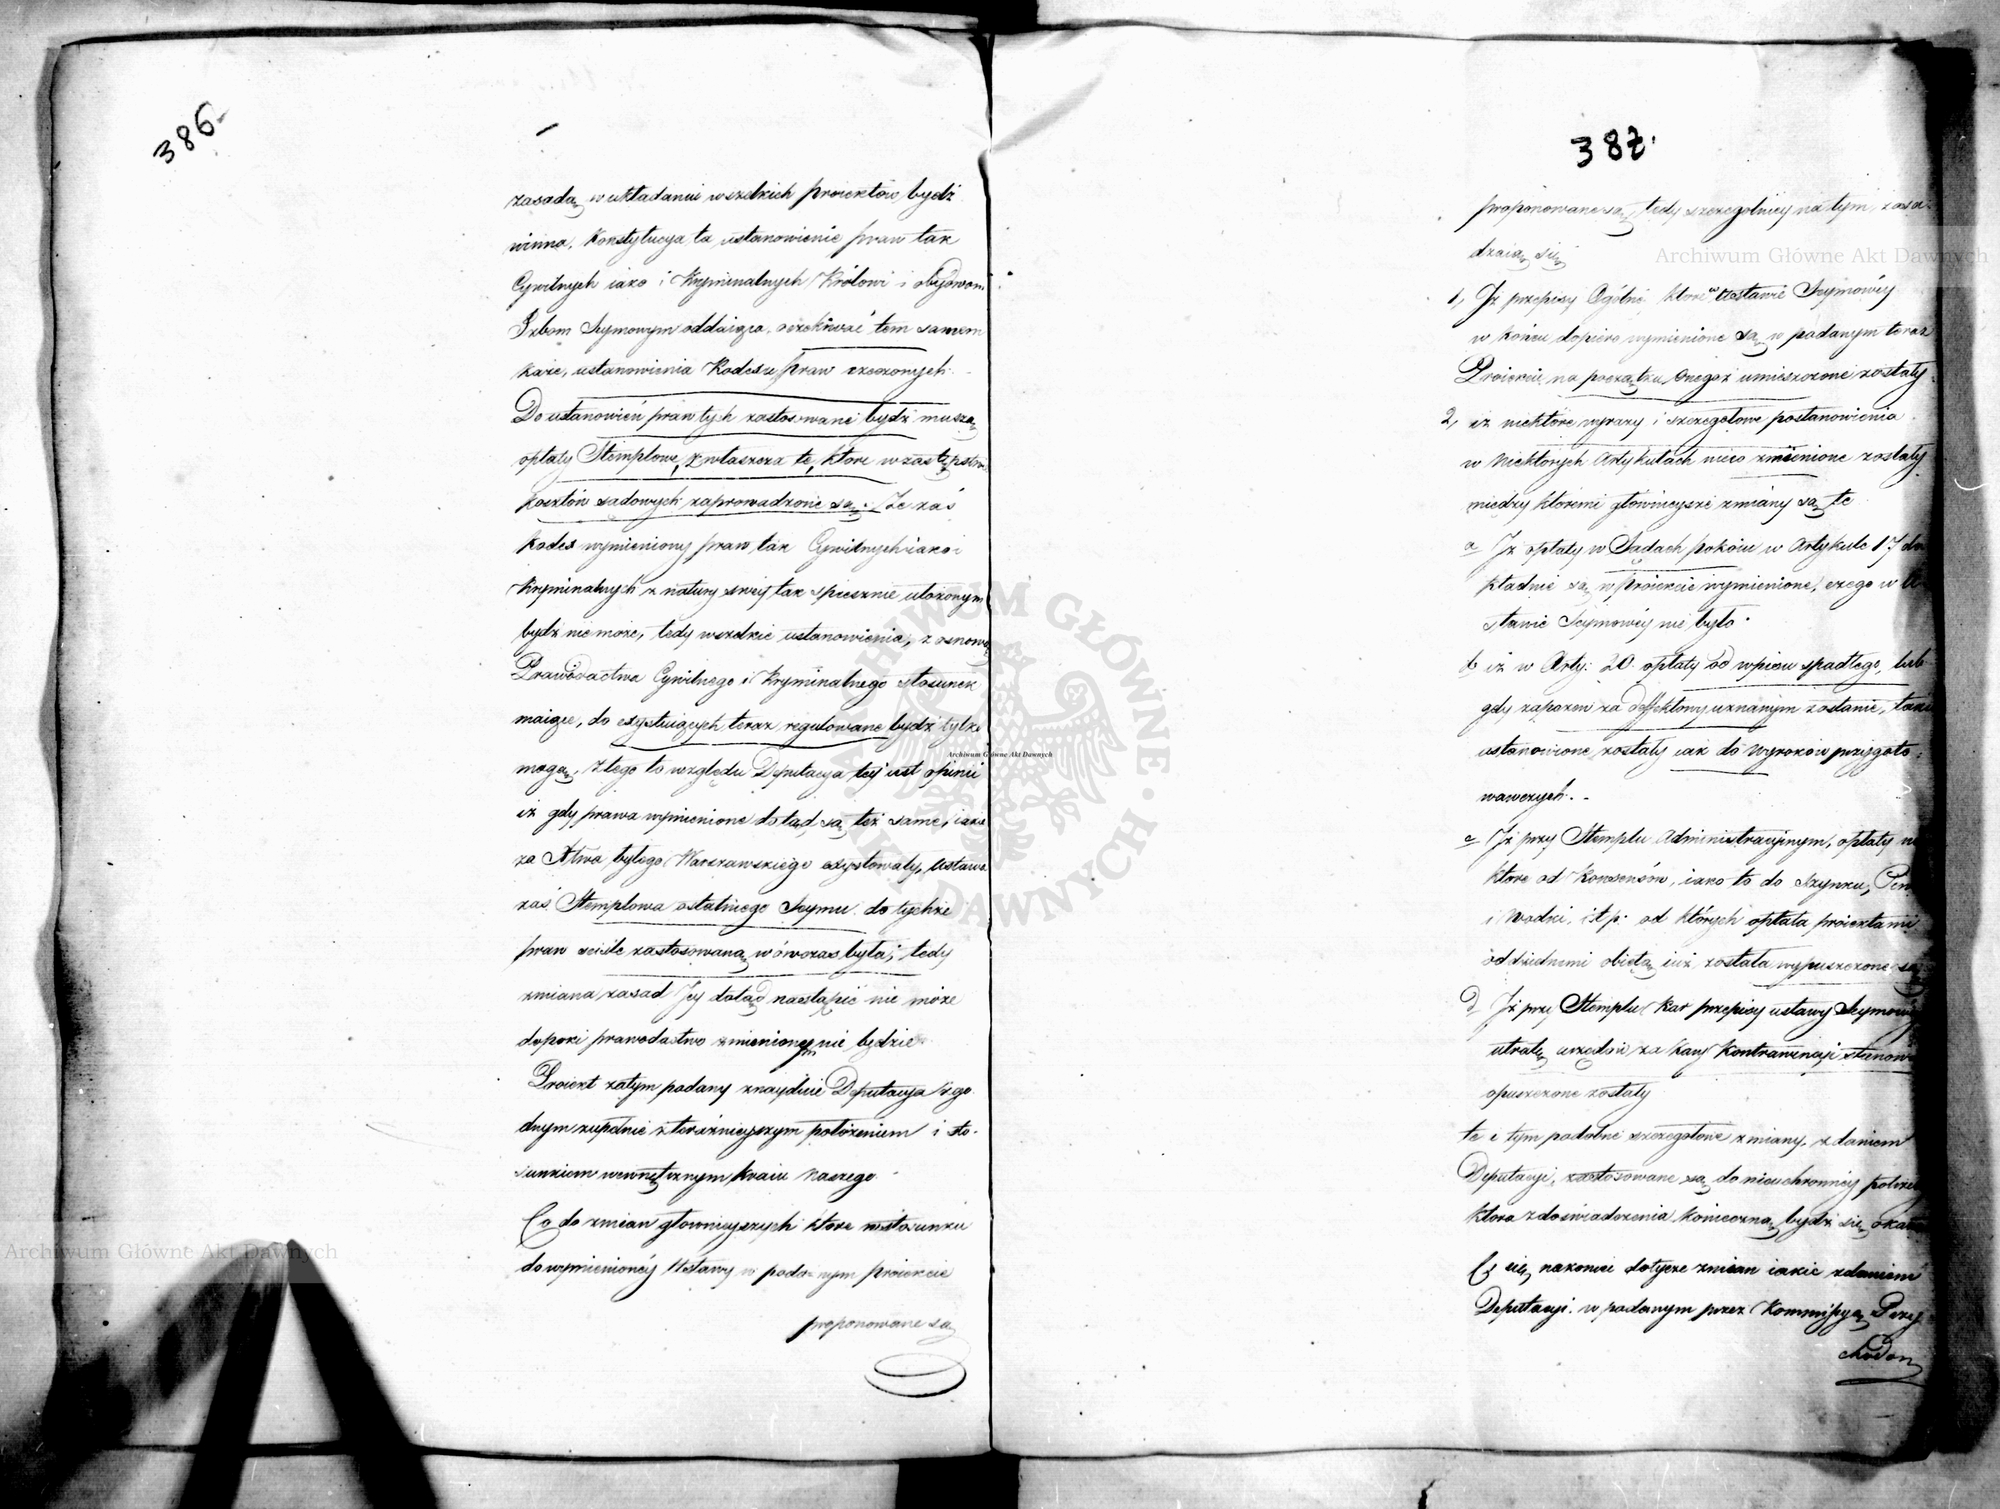 386.
zasadą w układaniu wszelkich proiektów bydź
winna. Konstytucya ta ustanowienie praw tak
Cywilnych iako i Kryminalnych Królowi i obydwom
Izbom Seymowym oddaiąca, oczekiwać tem samem
każe, ustanowienia Kodexu praw rzeczonych.
Do ustanowień praw tych zastosowane bydź muszą
opłaty Stemplowe, zwłaszcza te, które w zastępstw.
kosztów sadowych zaprowadzone są. Że zaś
kodex wymieniony praw tak Cywilnych iako i
Kryminalnych z natury swey tak spiesznie ułożonym
bydź nie może, tedy wszelkie ustanowienia, z osnową
Prawodactwa Cywilnego i Kryminalnego stosunek
maiące, do exystuiących teraz regulowane bydź tylko
mogą. Z tego to względu Deputacya tey iest opinii
iż gdy prawa wymienione dotąd są też same, iakie
za Xtwa byłego Warszawskiego exystowały, ustawa
zaś Stemplowa ostatniego Seymu do tychże
praw ściśle zastosowaną wówczas była; tedy
zmiana zasad Jey dotąd nastąpić nie może
dopoki prawodastwo zmienionym nie będzie.
Proiekt zatym podany znayduie Deputacya zgo-
dnym zupełnie z teraźnieyszym położeniem i sto-
sunkiem wewnętrznym kraiu naszego.
Co do zmian głownieyszych które w stosunku
do wymienionéy Ustawy w podanym proiekcie
proponowane są
387.
proponowane są, tedy szczegolniey na tym zasa-
dzaią się
1, Iż przepisy Ogólne które w Ustawie Seymowéy
w końcu dopiero wymienione są, w podanym teraz
Proiekcie na początku onegoż umieszczone zostały.
2, iż niektóre wyrazy i szczegołowe postanowienia
w Niektórych Artykułach nieco zmienione zostały
między któremi głównieysze zmiany są te
a Iż opłaty w Sadach pokóiu w Artykule 17 do
kładnie są w proiekcie wymienione, czego w U
stawie Seymowéy nie było.
b iż w Arty: 20. opłaty od wpisu spadłego, lub
gdy zapozew za deffektowy uznanym zostanie, takie
ustanowione zostały iak do wyroków przygoto-
wawczych. -
c Iż przy Stemplu Administracyjnym, opłaty nie
które od Konsensów, iako to do Szynku,
i Wodki, i t. p. od których opłata proiektami
oddzielnemi obiętą iuż została wypuszczone są
d Iż przy Stemplu Kar przepisy ustawy Seymowey
utratę urzędów za Kary Kontrawencyi stanowi
opuszczone zostały
te i tym podobne szczegołowe zmiany, zdaniem
Deputacyi, zastosowane są do nieuchronnéy potrze
która z doświadczenia konieczną bydź się okaz
Co się nakoniec dotycze zmian iakie zdaniem
Deputacyi w podanym przez Kommissyą Przy
chodow
Archiwum Główne Akt Dawnych
Archiwum Główne Akt Dawnych
Archiwum Główne Akt Dawnych
ARCHIWUM GŁÓWNE AKT DAWNYCH